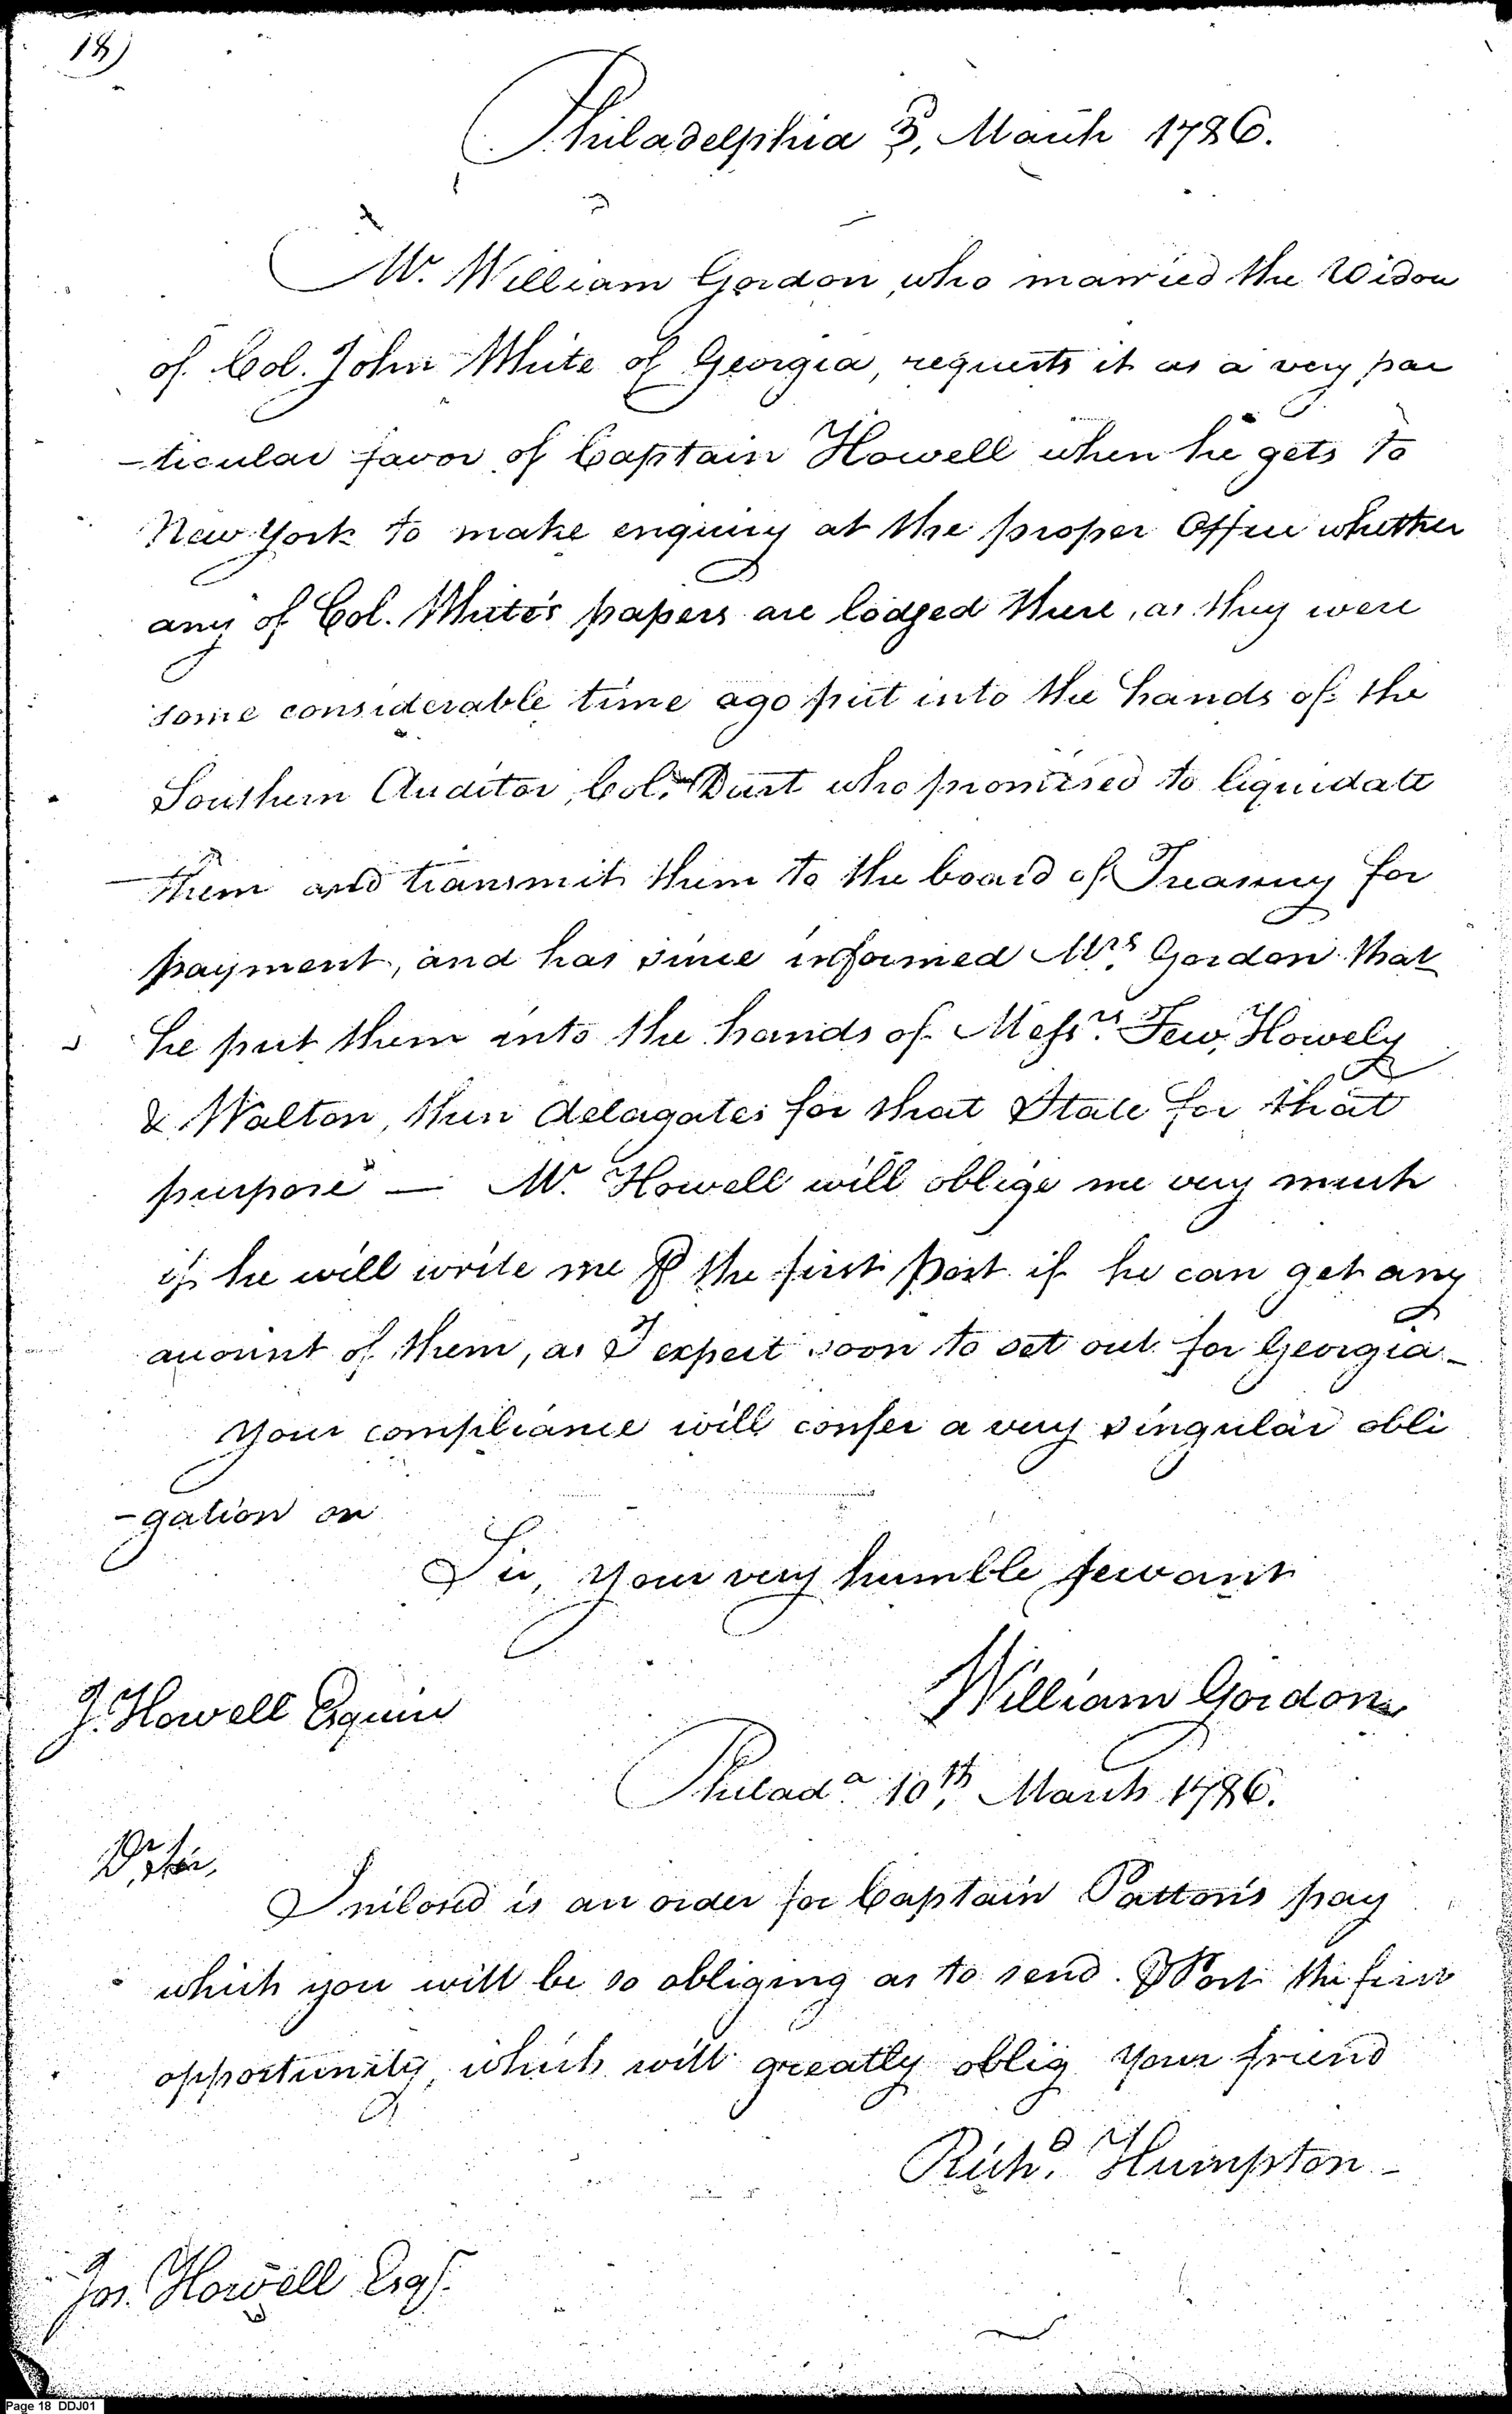 18)
Philadelphia 3, March 1786.
Mr. William Gordon, who married the Widow
of Col. John White of Georgia, requests it as a very par
-ticular favor of Captain Howell when he gets to
New York to make enquiry at the proper Office whether
any of Col. White's papers are lodged there, as they were
some considerable time ago put into the hands of the
Southern Auditor, Col. who promised to liquidate
them and transmit them to the board of Treasury for
payment, and has since informed Mrs. Gordon that
he put them into the hands of Messrs. Few, Howely
& Walton, then delagates for that State for that
purpose — Mr. Howell will oblige me very much
if he will write me ⅌ the first Post if he can get any
account of them, as I expect soon to set out for Georgia_
Your compliance will confer a very singular obli
-gation on
Sir, your very humble servant
William Gordon
J. Howell Esquire
Philada. 10th, March 1786.
Dr. Sir,
Inclosed is an order for Captain Patton's pay
which you will be so obliging as to send ⅌ Post the first
opportunity, which will greatly oblig your friend
Richd. Humpton_
Jos. Howell Esqr.
Page 18 DDJ01